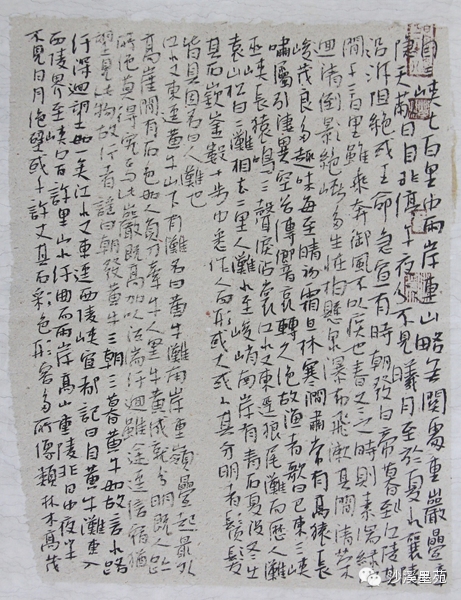 自三峡七百里中兩岸連山略無闕處重巖疊嶂
隱天蔽日自非停午夜分不見曦月至於夏水襄陵
沿泝阻絶或王命急宣有時朝發白帝暮到江陵其
間千二百里雖乘奔御風不以疾也春冬之時則素湍緑潭
迴清倒影絶巘多生怪柏懸泉瀑布飛漱其間清榮
峻茂良多趣味每至晴初霜旦林寒澗肅常有高猿長
嘯屬引淒異空谷傳響哀轉久絶故漁者歌曰巴東三峽
巫峽長猿鳴三聲淚沾裳江水又東逕狼尾灘而歷人灘
袁山松曰二灘相去二里人灘水至峻峭南岸有青石夏沒冬出
其石嶔崟數十步中悉作人面形或大或小其分明者鬚髮
皆具因名曰人灘也
江水又東逕黄牛山下有灘名曰黄牛灘南岸重嶺疊起最外
高崖間有石色如人負刀牽牛人黑牛黄成就分明既人跡
所絶莫得究焉此巖既高加以江湍紆迴雖途逕信宿猶
望見此物故行者謠曰朝發黄牛三朝三暮黄牛如故言水路
紆深迴望如一矣江水又東逕西陵峽宜都記曰自黄牛灘東入
西陵界至峽口百許里山水紆曲而兩岸高山重障非日中夜半
不見日月絶壁或千許丈其石彩色形容多所像類林木高茂
沙溪墨苑